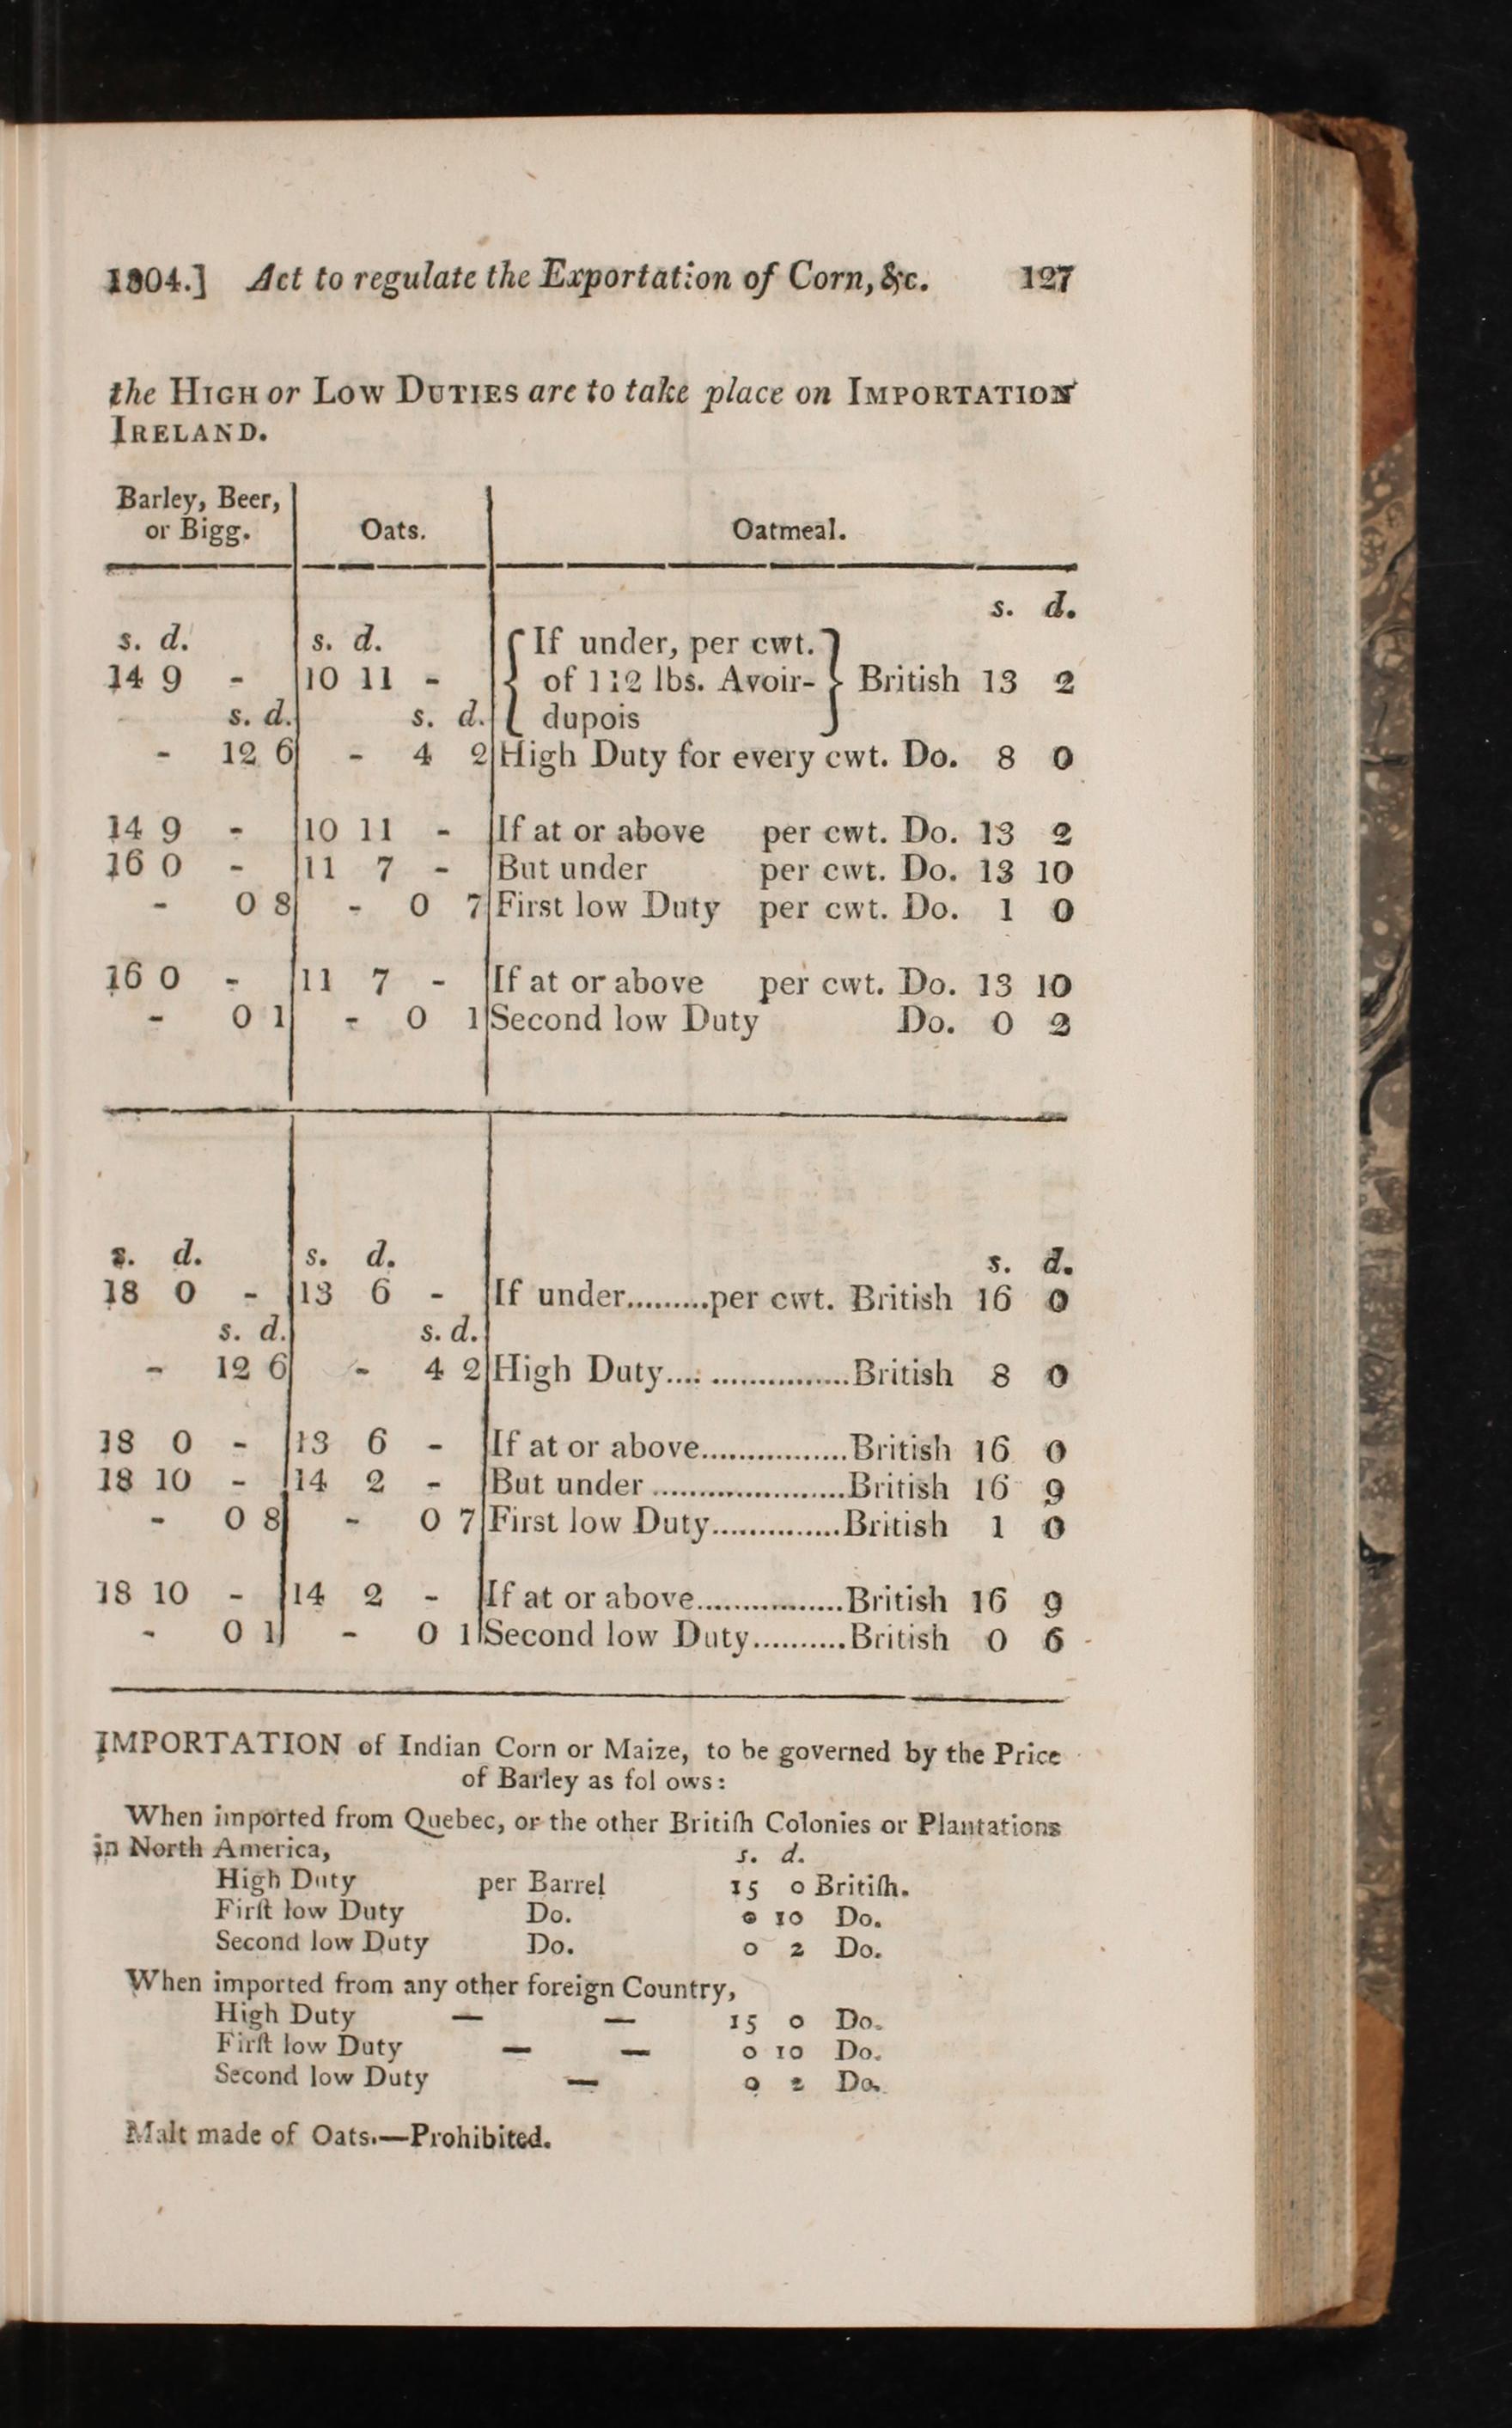 1804.] Act to regulate the Exportation of Corn, &c. 127
the HIGH or LOW DUTIES are to take place on IMPORTATION
IRELAND.
Barley, Beer,
or Bigg. Oats. Oatmeal.
s. d.
s. d. s. d. { If under, per cwt. }
14 9 - 10 11 - { of 112 lbs. Avoir- } British 13 2
s. d. s. d. { dupois }
- 12 6 - 4 2 High Duty for every cwt. Do. 8 0
14 9 - 10 11 - If at or above per cwt. Do. 13 2
16 0 - 11 7 - But under per cwt. Do. 13 10
- 0 8 - 0 7 First low Duty per cwt. Do. 1 0
16 0 - 11 7 - If at or above per cwt. Do. 13 10
- 0 1 - 0 1 Second low Duty Do. 0 2
s. d. s. d. s. d.
18 0 - 13 6 - If under.........per cwt. British 16 0
s. d. s. d.
- 12 6 - 4 2 High Duty.... ...............British 8 0
18 0 - 13 6 - If at or above................British 16 0
18 10 - 14 2 - But under .....................British 16 9
- 0 8 - 0 7 First low Duty..............British 1 0
18 10 - 14 2 - If at or above................British 16 9
- 0 1 - 0 1 Second low Duty..........British 0 6
IMPORTATION of Indian Corn or Maize, to be governed by the Price
of Barley as fol ows:
When imported from Quebec, or the other Britiſh Colonies or Plantations
in North America, s. d.
High Duty per Barrel 15 0 Britiſh.
Firſt low Duty Do. 0 10 Do.
Second low Duty Do. 0 2 Do.
When imported from any other foreign Country,
High Duty — — 15 0 Do.
Firſt low Duty — — 0 10 Do.
Second low Duty — 0 2 Do.
Malt made of Oats.—Prohibited.